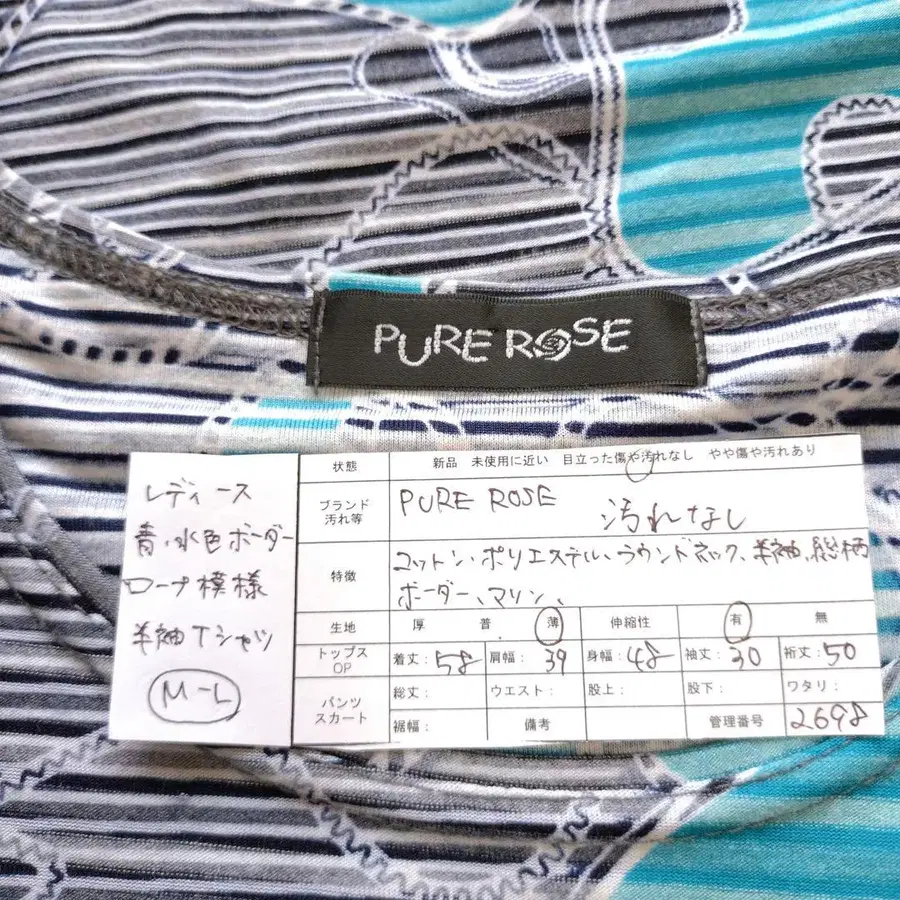 PURE ROSE
レディース
青・水色ボーダー
ロープ模様
半袖Tシャツ
M-L
状態 新品 未使用に近い 目立った傷や汚れなし やや傷や汚れあり
ブランド 汚れ等 PURE ROSE 汚れなし
特徴 コットン、ポリエステル、ラウンドネック、半袖、総柄
ボーダー、マリン、
生地 厚 普 薄 伸縮性 有 無
トップス OP 着丈:58 肩幅:39 身幅:48 袖丈:30 裄丈:50
パンツ スカート 総丈: ウエスト: 股上: 股下: ワタリ:
裾幅: 備考 管理番号 2698